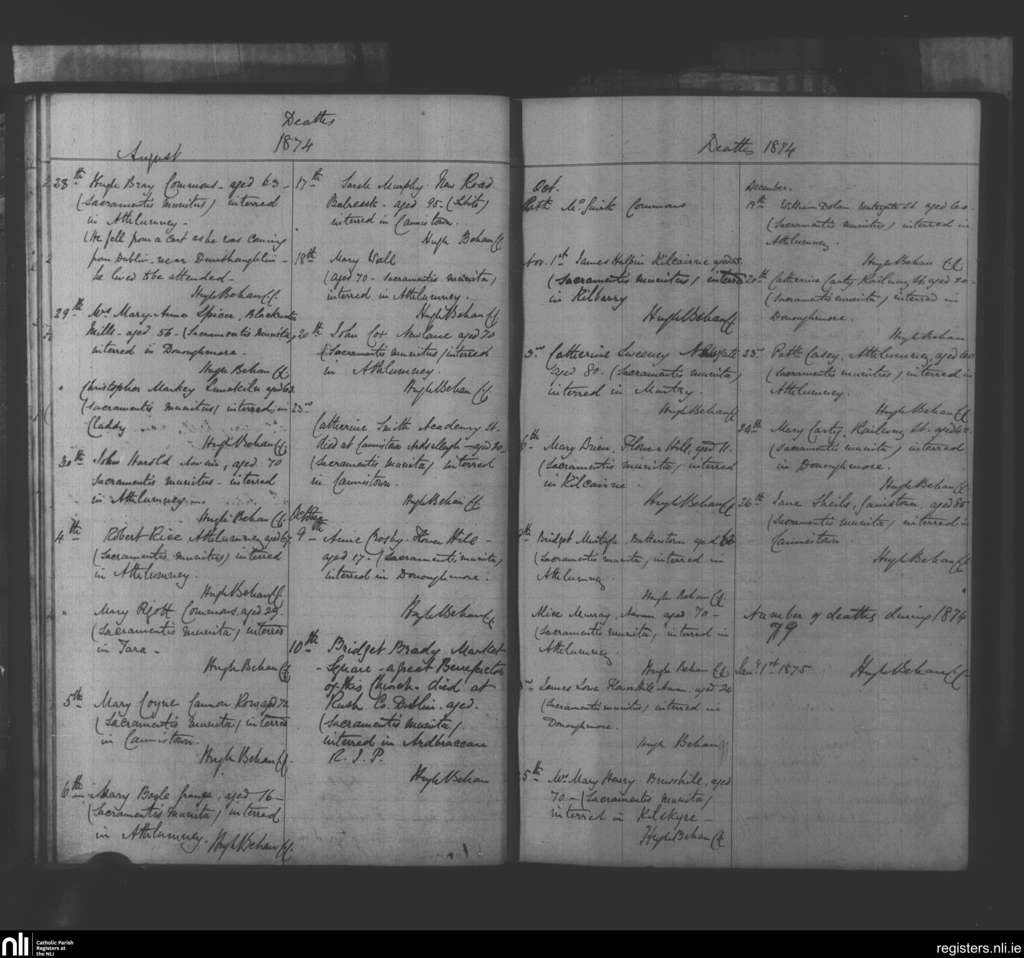 Deaths
1874
August
28th Hugh Bray Commons - aged 63 -
(Sacramentis munitus) interred
in Athlumney -
(He fell from a cart as he was coming
from Dublin - near
he lived to be attended -
Hugh Behan CC
29th Mrs Mary Anne Spicer, Blackwater
Mills - aged 56 - (Sacramentis munita)
interred in Donoughmore -
Hugh Behan CC
Christopher Markey aged 63
(Sacramentis munitus) interred in
Claddy
Hugh Behan CC
30th John Harold aged 70
Sacramentis munitus - interred
in Athlumney
Hugh Behan CC
4th Robert Rice Athlumney aged
(Sacramentis munitus) interred
in Athlumney.
Hugh Behan CC
" Mary Commons, aged 29
(Sacramentis munita) interred
in Tara -
Hugh Behan CC
5th Mary Coyne Cannon Row aged 72
(Sacramentis munita) interred
in Cannistown.
Hugh Behan CC
6th Mary Boyle grange, aged 76 -
(Sacramentis munita) interred
in Athlumney.
Hugh Behan CC
17th Sarah Murphy New Road
aged 95 -
interred in Cannistown.
Hugh Behan CC
18th Mary Wall
(aged 70 - sacramentis munita)
interred in Athlumney.
Hugh Behan CC
20th John Cox New lane aged 70
(Sacramentis munitus) interred
in Athlumney.
Hugh Behan CC
23rd
Catherine Smith Academy St.
died at Cannistown aged
(Sacramentis munita) interred
in Cannistown.
Hugh Behan CC
October
9th Annie Crosby Flower Hill -
aged 17 - (Sacramentis munita)
interred in Donoughmore.
Hugh Behan CC
10th Bridget Brady Market
Square - a great Benefactor
of this Church - died at
Rush Co. Dublin - aged.
(Sacramentis munita)
interred in Ardbraccan
R. I. P.
Hugh Behan
Deaths 1874
Oct.
Patk McGuirk Commons
Nov. 1st James Halpin Kilcairne aged
(Sacramentis munitus) interred
in Kilberry
Hugh Behan CC
3rd Catherine Sweeney
aged 80. (Sacramentis munita)
interred in Martry.
Hugh Behan CC
6th Mary Brien, Flower Hill, aged 11.
(Sacramentis munita) interred
in Kilcairne.
Hugh Behan CC
Bridget aged
(Sacramentis munita) interred in
Athlumney
Hugh Behan CC
Alice Murray, Navan aged 70 -
(Sacramentis munita) interred in
Athlumney
Hugh Behan CC
James Lowe aged 24
(Sacramentis munitus) interred in
Donoughmore.
Hugh Behan CC
5th Mrs Mary Harry Brewshill, aged
70 - (Sacramentis munita)
interred in Kilskyre -
Hugh Behan CC
December.
19th William Dolan Watergate St. aged
(Sacramentis munitus) interred in
Athlumney.
Hugh Behan CC
20th Catherine Carty Railway St. aged 20 -
(Sacramentis munita) interred in
Donoughmore.
Hugh Behan
23rd Patk Casey, Athlumney, aged
(Sacramentis munitus) interred in
Athlumney.
Hugh Behan CC
24th Mary Carty, Railway St. aged
(Sacramentis munita) interred
in Donoughmore.
Hugh Behan CC
26th Jane Sheils, aged 80
(Sacramentis munita) interred in
Cannistown.
Hugh Behan CC
Number of deaths during 1874
79
Jany 1st 1875 Hugh Behan CC
nli
Catholic Parish
Registers at
the NLI
registers.nli.ie